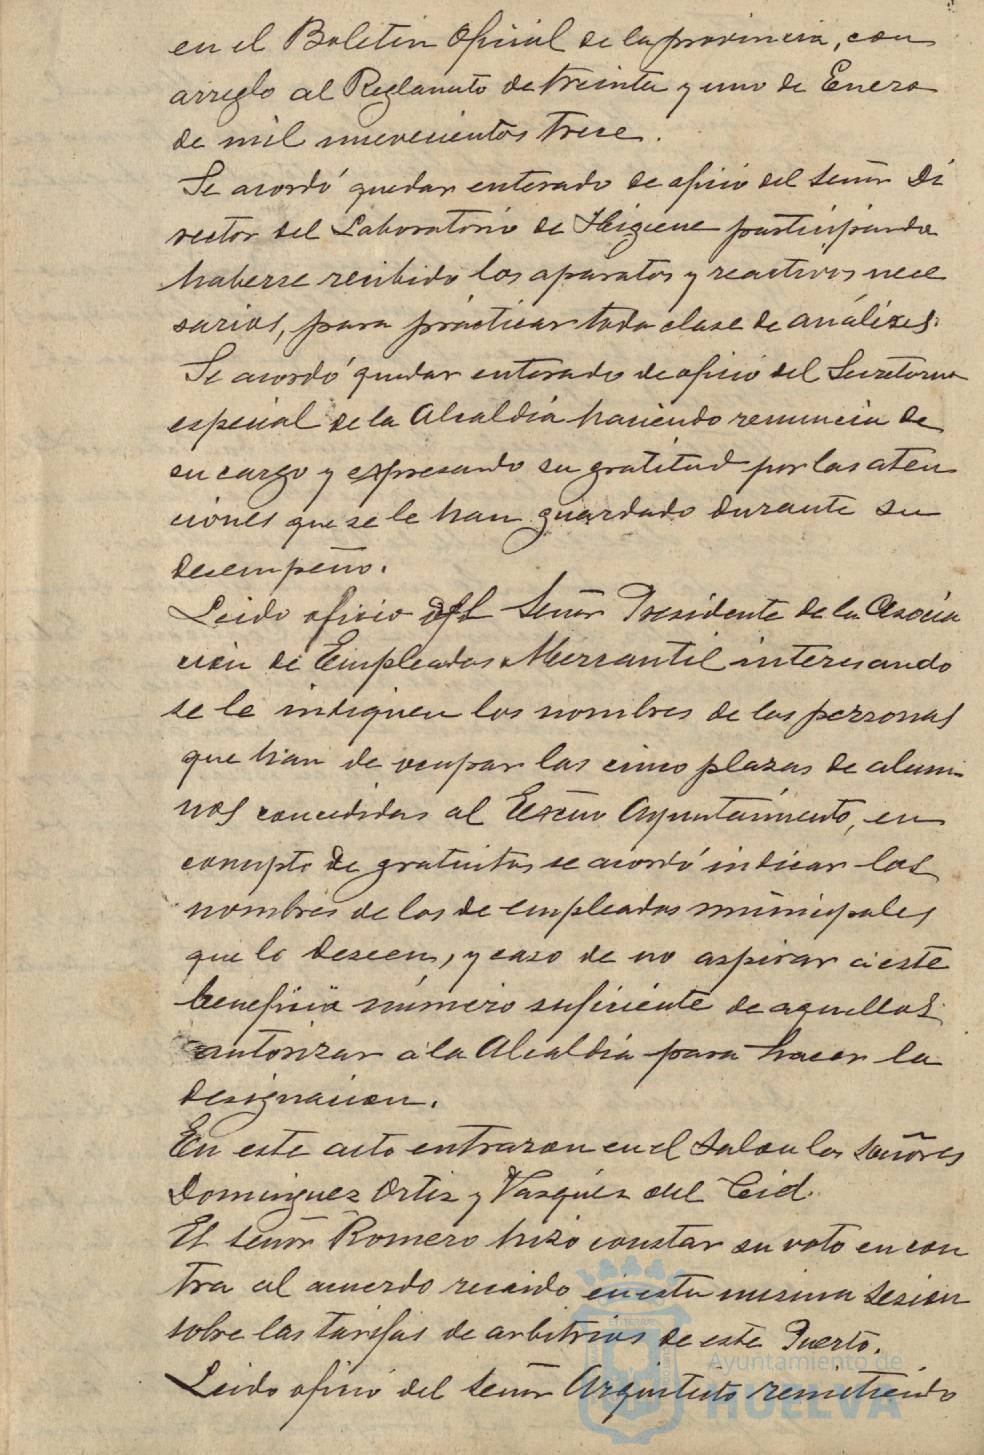 en el Boletin Oficial de la provincia, con
arreglo al Reglamento de treinta y uno de Enero
de mil novecientos trece.
Se acordó quedar enterado de oficio del Señor Di
rector del Laboratorio de Higiene participando
haberse recibido los aparatos y reactivos nece
sarios, para practicar toda clase de análises.
Se acordó quedar enterado de oficio del Secretario
especial de la Alcaldía haciendo renuncia de
su cargo y expresando su gratitud por las aten
ciones que se le han guardado durante su
desempeño.
Leido oficio del Señor Presidente de la Asocia
ción de Empleados Mercantil interesando
se le indiquen los nombres de las personas
que han de ocupar las cinco plazas de alum
nos concedidas al Excmo Ayuntamiento, en
concepto de gratuitas se acordó indicar los
nombres de los de empleados municipales
que lo deseen, y caso de no aspirar á este
beneficio número suficiente de aquellos
autorizar á la Alcaldía para hacer la
designacion.
En este acto entraron en el Salon los Señores
Dominguez Ortiz y Vazquez del Cid.
El Señor Romero hizo constar su voto en con
tra al acuerdo recaido en esta misma sesion
sobre las tarifas de arbitrios de este Puerto.
Leido oficio del Señor Arquitecto remitiendo
Ayuntamiento de
HUELVA